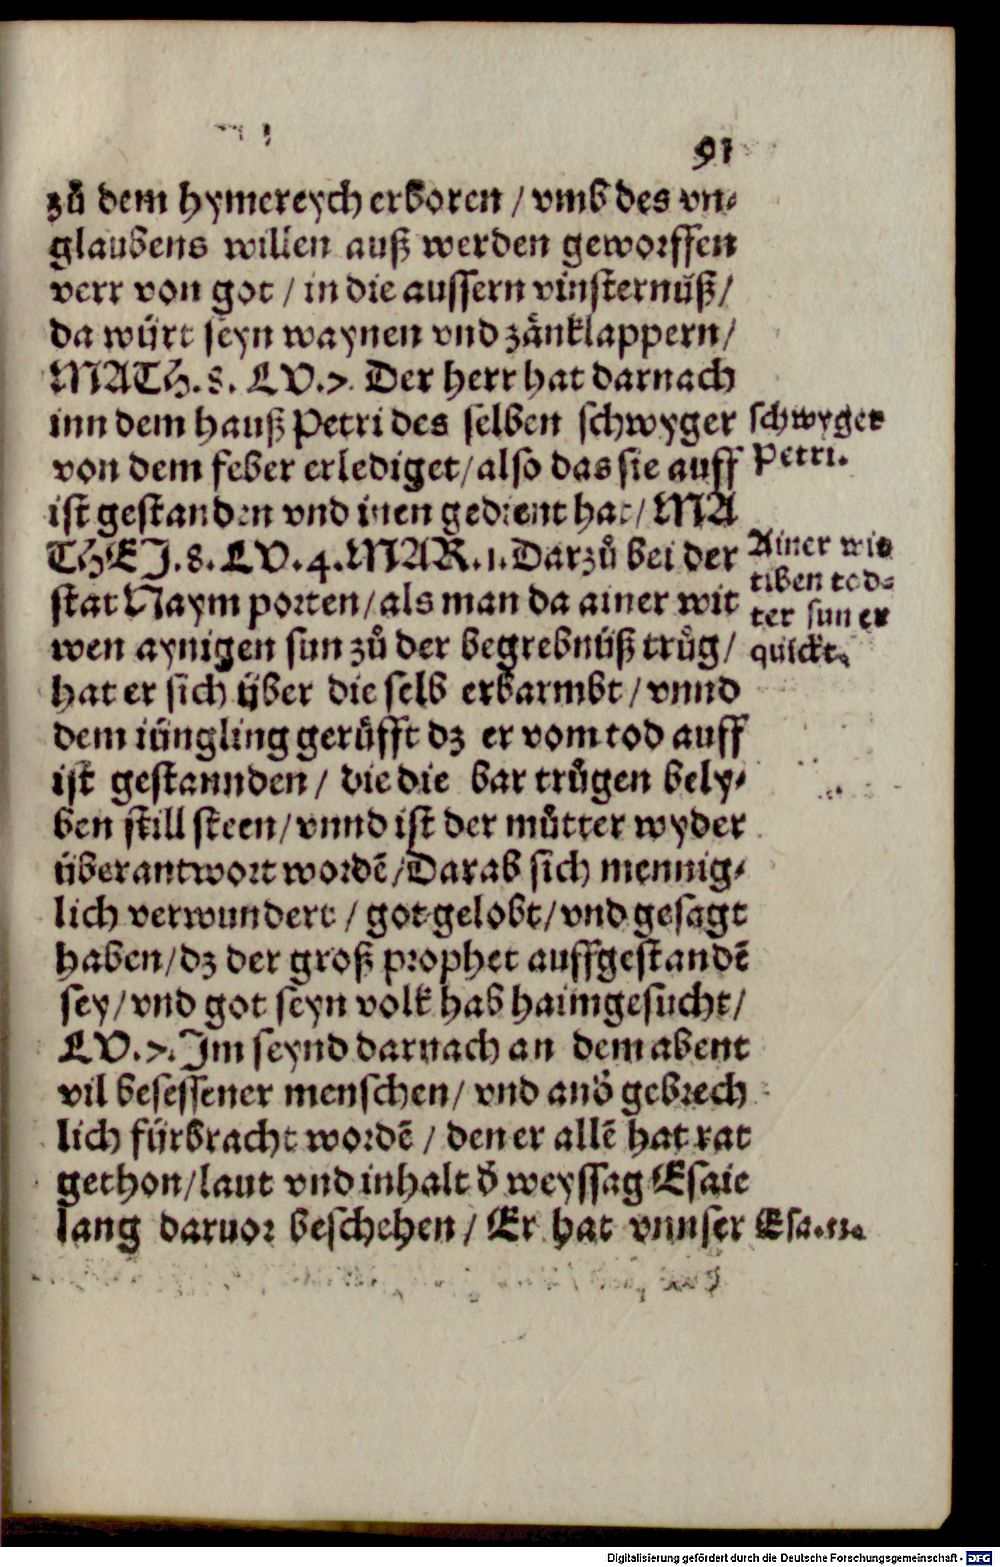 91
zů dem hymereych erboren / vmb des vn⸗
glaubens willen auß werden geworffen
verr von got / in die aussern vinsternüß/
da würt seyn waynen vnd zänklappern/
MATH. 8. LV. 7. Der herr hat darnach
inn dem hauß Petri des selben schwyger
schwyger
von dem feber erlediget/also das sie auff
Petri.
ist gestanden vnd inen gedient hat/ MA
THEJ. 8. LV. 4. MAR. 1. Darzů bei der
Ainer wit
stat Naym porten/als man da ainer wit
tiben tod⸗
wen aynigen sun zů der begrebnüß trůg/
ter sun er
quickt.
hat er sich über die selb erbarmbt / vnnd
dem iüngling gerůfft dz er vom tod auff
ist gestannden / die die bar trůgen bely⸗
ben still steen/vnnd ist der můtter wyder
überantwort wordē/Darab sich mennig⸗
lich verwundert / got gelobt/vnd gesagt
haben/dz der groß prophet auffgestandē
sey/vnd got seyn volk hab haimgesucht/
LV. 7. Jm seynd darnach an dem abent
vil besessener menschen/ vnd and̕ gebrech
lich fürbracht wordē / den er allē hat rat
gethon/laut vnd inhalt d̕ weyssag Esaie
lang daruor beschehen / Er hat vnnser
Esa.
Digitalisierung gefördert durch die Deutsche Forschungsgemeinschaft - DFG